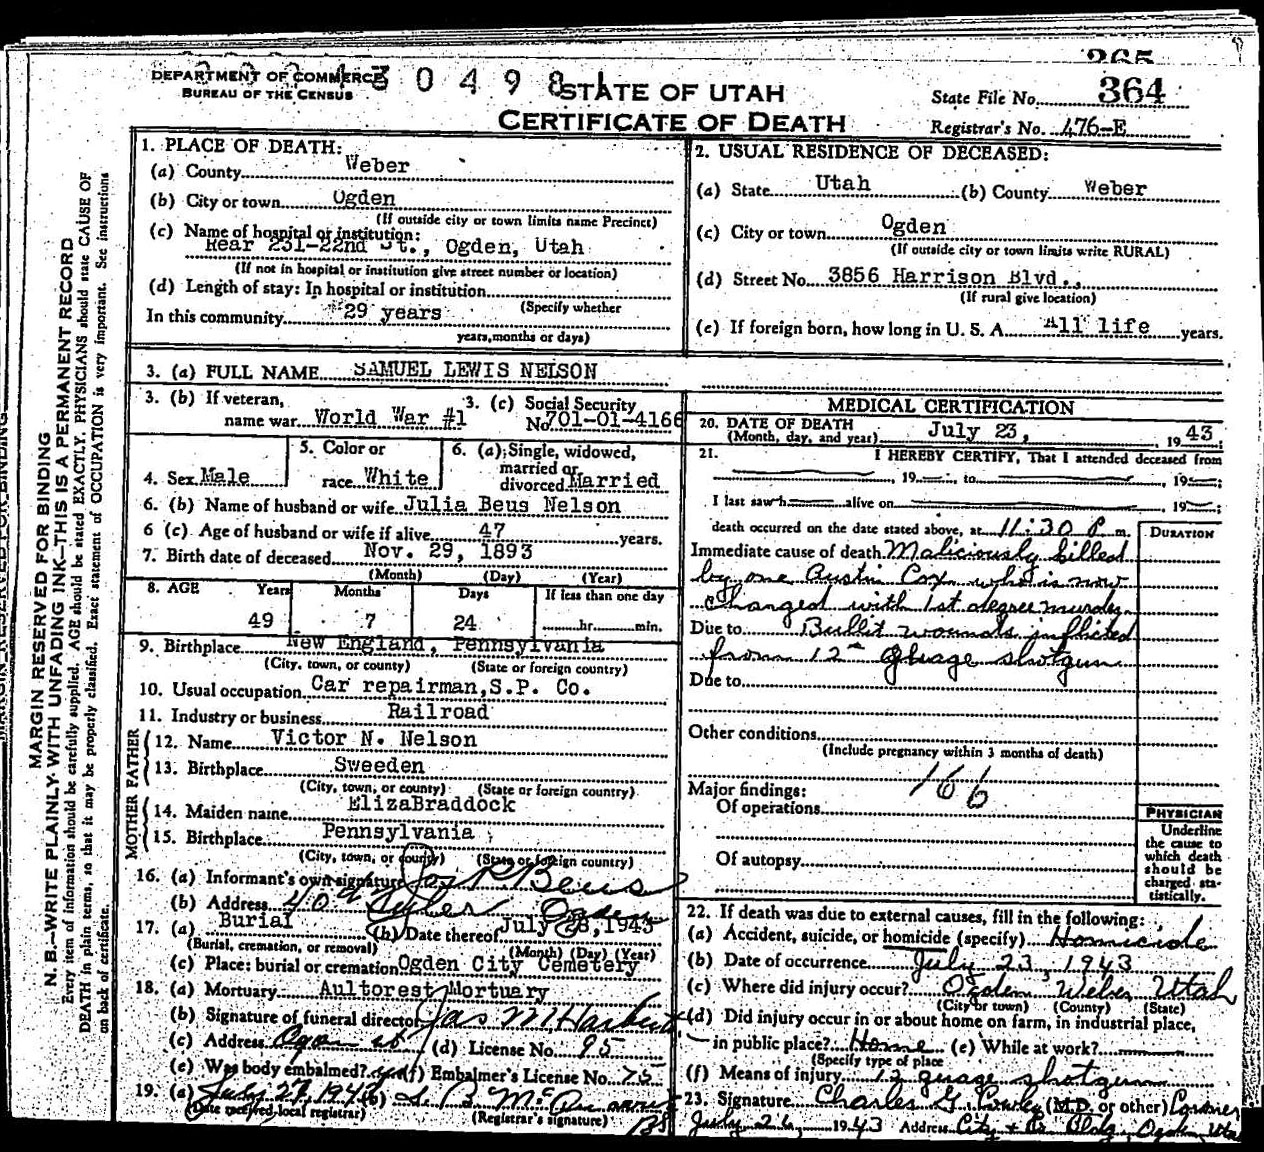 365
DEPARTMENT OF COMMERCE
BUREAU OF THE CENSUS
3 0 4 9 8 1
STATE OF UTAH
CERTIFICATE OF DEATH
State File No. 364
Registrar's No. 476-E
MARGIN RESERVED FOR BINDING
N. B.—WRITE PLAINLY WITH UNFADING INK—THIS IS A PERMANENT RECORD
Every item of information should be carefully supplied. AGE should be stated EXACTLY. PHYSICIANS should state CAUSE OF
DEATH in plain terms, so that it may be properly classified. Exact statement of OCCUPATION is very important. See instructions
on back of certificate.
1. PLACE OF DEATH:
(a) County Weber
(b) City or town Ogden
(If outside city or town limits name Precinct)
(c) Name of hospital or institution:
Rear 231-22nd St., Ogden, Utah
(If not in hospital or institution give street number or location)
(d) Length of stay: In hospital or institution
(Specify whether
In this community 29 years
years, months or days)
2. USUAL RESIDENCE OF DECEASED:
(a) State Utah (b) County Weber
(c) City or town Ogden
(If outside city or town limits write RURAL)
(d) Street No. 3856 Harrison Blvd.,
(If rural give location)
(e) If foreign born, how long in U. S. A. All life years.
3. (a) FULL NAME SAMUEL LEWIS NELSON
3. (b) If veteran,
name war World War #1
3. (c) Social Security
No 701-01-4166
4. Sex Male
5. Color or
race White
6. (a) Single, widowed,
married or
divorced Married
6. (b) Name of husband or wife Julia Beus Nelson
6 (c) Age of husband or wife if alive 47 years.
7. Birth date of deceased Nov. 29, 1893
(Month) (Day) (Year)
8. AGE Years Months Days If less than one day
49 7 24 hr. min.
9. Birthplace New England, Pennsylvania
(City, town, or county) (State or foreign country)
10. Usual occupation Car repairman, S.P. Co.
11. Industry or business Railroad
FATHER
12. Name Victor N. Nelson
13. Birthplace Sweeden
(City, town, or county) (State or foreign country)
MOTHER
14. Maiden name ElizaBraddock
15. Birthplace Pennsylvania
(City, town, or county) (State or foreign country)
16. (a) Informant's own signature Jos R Beus
(b) Address Ogden
17. (a) Burial (b) Date thereof July 28, 1943
(Burial, cremation, or removal) (Month) (Day) (Year)
(c) Place: burial or cremation Ogden City Cemetery
18. (a) Mortuary Aultorest Mortuary
(b) Signature of funeral director Jas M Harbert
(c) Address Ogden (d) License No. 95
(e) Was body embalmed? yes (f) Embalmer's License No. 75
19. (a) July 27, 1943 (b)
(Date received local registrar) (Registrar's signature)
MEDICAL CERTIFICATION
20. DATE OF DEATH
(Month, day, and year) July 23, 1943;
21. I HEREBY CERTIFY, That I attended deceased from
, 19 , to , 19 ;
I last saw h alive on , 19 ;
death occurred on the date stated above, at 11:30 P m.
DURATION
Immediate cause of death Maliciously killed
by one Austin Cox who is now
charged with 1st degree murder
Due to Bullit wounds inflicted
from 12 guage shotgun
Due to
Other conditions
(Include pregnancy within 3 months of death)
166
Major findings:
Of operations
Of autopsy
PHYSICIAN
Underline
the cause to
which death
should be
charged sta-
tistically.
22. If death was due to external causes, fill in the following:
(a) Accident, suicide, or homicide (specify) Homicide
(b) Date of occurrence July 23, 1943
(c) Where did injury occur? Ogden Weber Utah
(City or town) (County) (State)
(d) Did injury occur in or about home on farm, in industrial place,
in public place? Home (e) While at work?
(Specify type of place
(f) Means of injury 12 guage shotgun
23. Signature Charles G. Cowley (M.D. or other) Coroner
July 26, 1943 Address City & Co. Bldg., Ogden, Utah